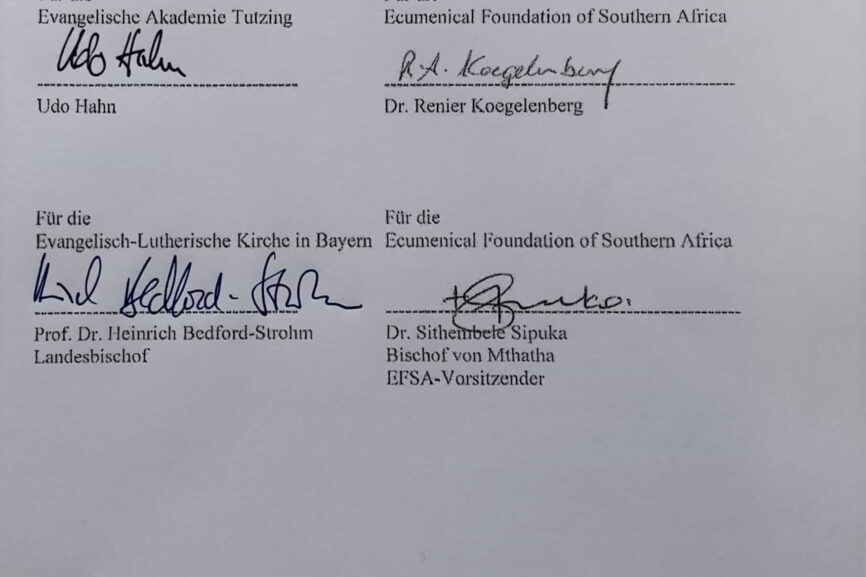 Evangelische Akademie Tutzing
Ecumenical Foundation of Southern Africa
Udo Hahn
R.A. Koegelenberg
Udo Hahn
Dr. Renier Koegelenberg
Für die
Evangelisch-Lutherische Kirche in Bayern
Für die
Ecumenical Foundation of Southern Africa
Bedford-Strohm
Prof. Dr. Heinrich Bedford-Strohm
Landesbischof
Sipuka
Dr. Sithembele Sipuka
Bischof von Mthatha
EFSA-Vorsitzender